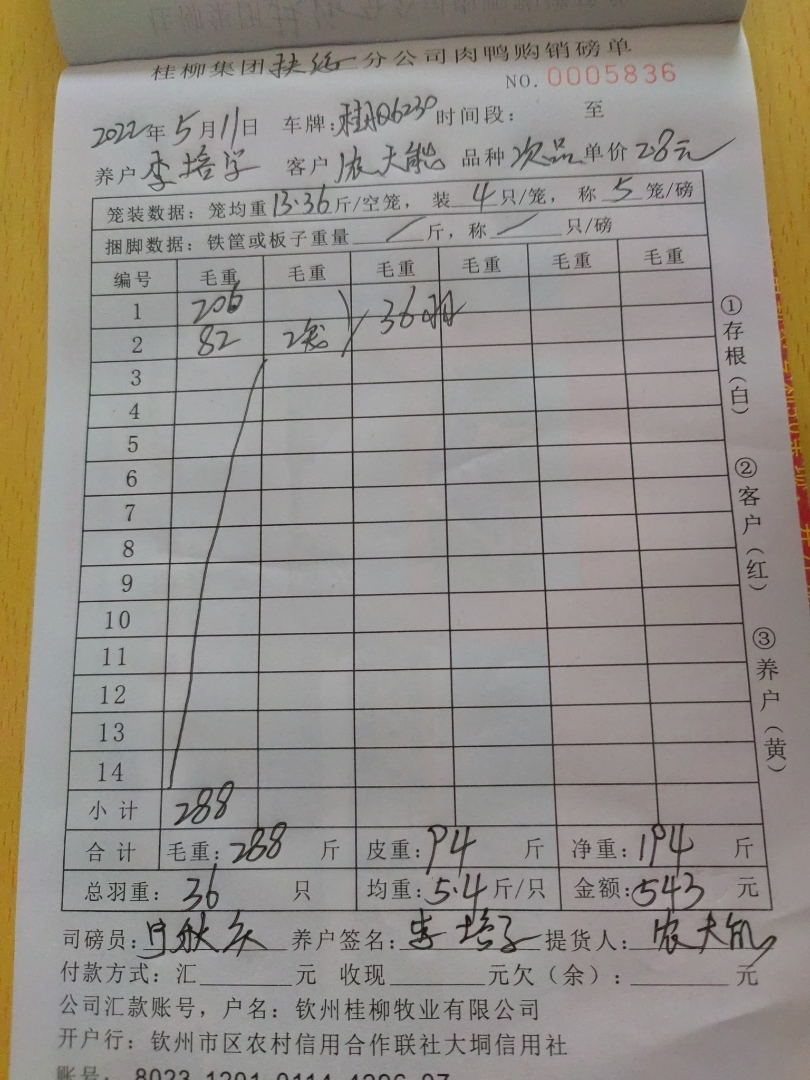 桂柳集团扶绥分公司肉鸭购销磅单
NO. 0005836
2022年5月11日 车牌: 时间段: 至
养户李培学 客户 农天能 品种次品单价2.8元
笼装数据: 笼均重13.36斤/空笼, 装4只/笼, 称5笼/磅
捆脚数据: 铁筐或板子重量/斤, 称/只/磅
编号 毛重 毛重 毛重 毛重 毛重 毛重
1 206
2 82 2笼 36羽
3
4
5
6
7
8
9
10
11
12
13
14
小计 288
合计 毛重: 288 斤 皮重: 94 斤 净重: 194 斤
总羽重: 36 只 均重: 5.4斤/只 金额: 543 元
司磅员: 养户签名: 李培学 提货人: 农天能
付款方式: 汇 元 收现 元欠(余): 元
公司汇款账号, 户名: 钦州桂柳牧业有限公司
开户行: 钦州市区农村信用合作联社大垌信用社
账号:
①存根(白)
②客户(红)
③养户(黄)